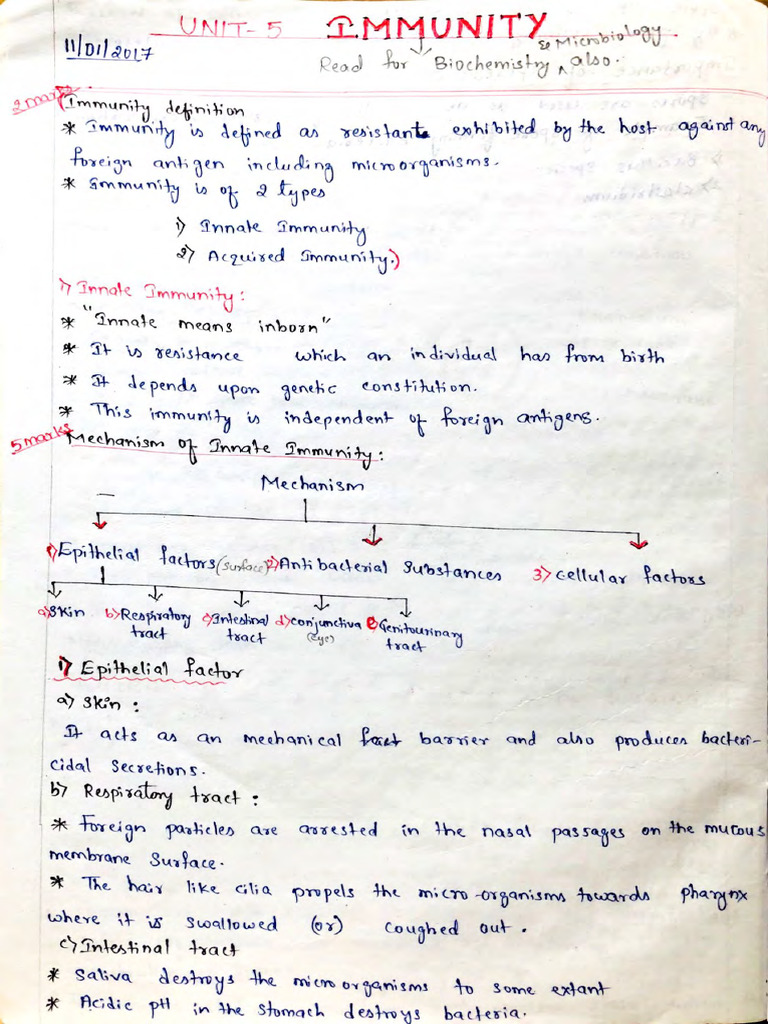 UNIT- 5 IMMUNITY
11/01/2017
Read for Biochemistry & Microbiology also.
2 marks (Immunity definition
* Immunity is defined as resistant exhibited by the host against any
foreign antigen including microorganisms.
* Immunity is of 2 types
1) Innate Immunity
2) Acquired Immunity.)
1) Innate Immunity:
* "Innate means inborn"
* It is resistance which an individual has from birth
* It depends upon genetic constitution.
* This immunity is independent of foreign antigens.
5 marks Mechanism of Innate Immunity:
Mechanism
1) Epithelial factors (surface) 2) Antibacterial Substances 3) Cellular factors
a) Skin b) Respiratory tract c) Intestinal tract d) conjunctiva (eye) e) Genitourinary tract
1) Epithelial factor
a) Skin :
It acts as an mechanical barrier and also produces bacteri-
cidal Secretions.
b) Respiratory tract :
* Foreign particles are arrested in the nasal passages on the mucous
membrane Surface.
* The hair like cilia propels the micro-organisms towards pharynx
where it is swallowed (or) coughed out.
c) Intestinal tract
* Saliva destroys the microorganisms to some extant
* Acidic pH in the stomach destroys bacteria.